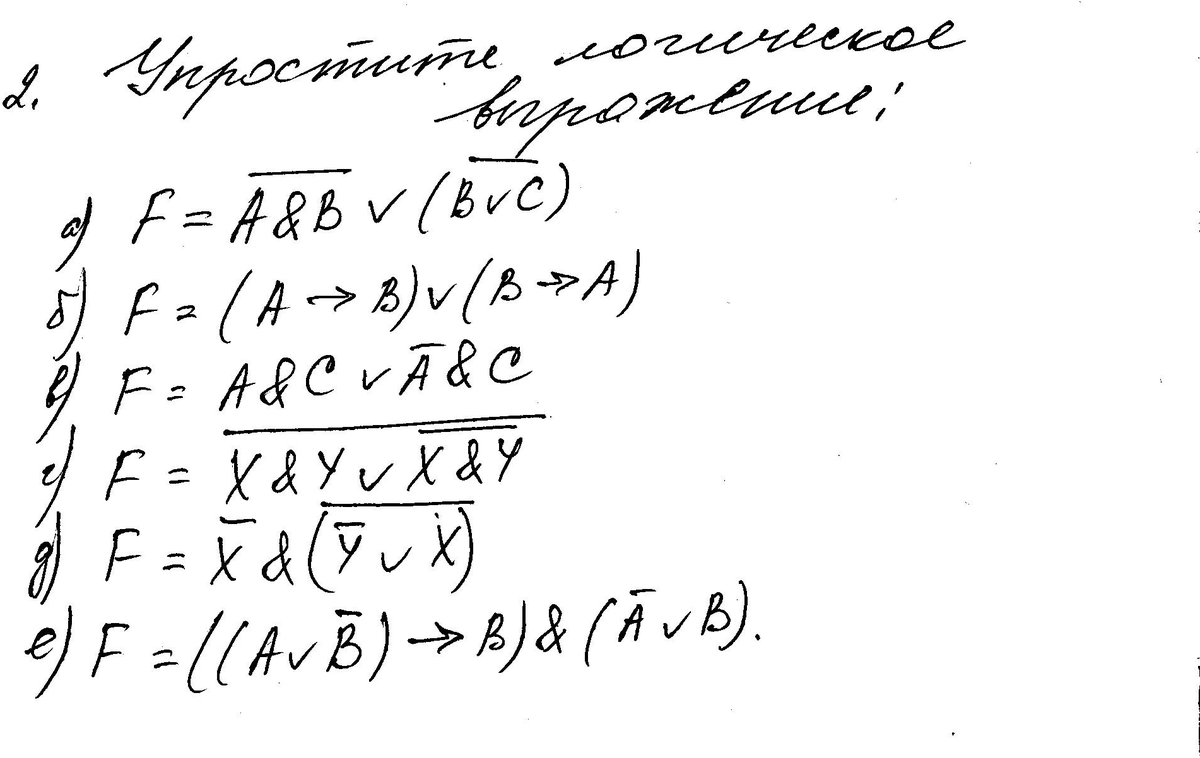 2. Упростите логическое
выражение:
а) F = A̅&̅B̅ ∨ (B̅∨̅C̅)
б) F = (A → B) ∨ (B → A)
в) F = A & C ∨ A̅ & C
г) F = \overline{X & Y ∨ \overline{X & Y}}
д) F = X̅ & (\overline{Y̅ ∨ X})
е) F = ((A ∨ B̅) → B) & (A̅ ∨ B).